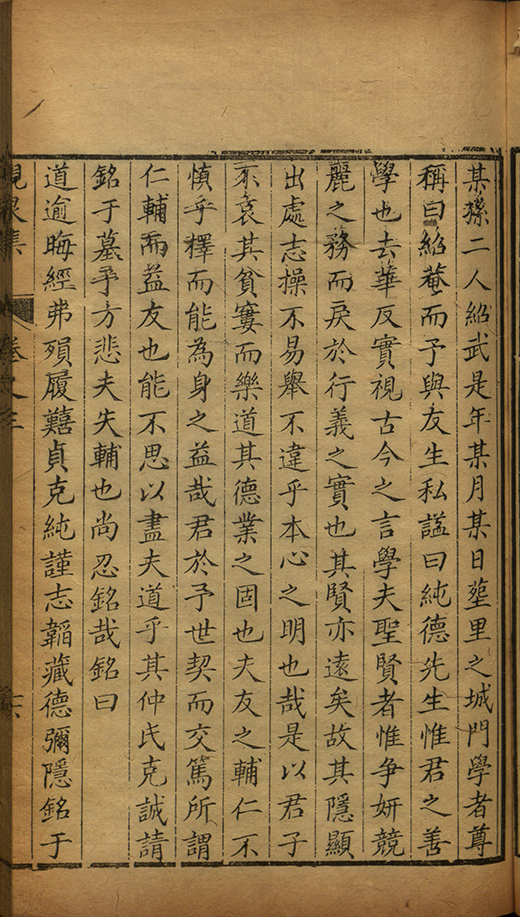 某孫二人紹武是年某月某日塟里之城門學者尊
稱曰紹菴而予與友生私謚曰純德先生惟君之善
學也去華反實視古今之言學夫聖賢者惟争妍競
麗之務而戾於行義之實也其賢亦遠矣故其隱顯
出處志操不易舉不違乎本心之明也哉是以君子
不哀其貧窶而樂道其德業之固也夫友之輔仁不
慎乎擇而能為身之益哉君於予世契而交篤所謂
仁輔而益友也能不思以盡夫道乎其仲氏克誠請
銘于墓予方悲夫失輔也尚忍銘哉銘曰
道逾晦經弗殞履囏貞克純謹志韜藏德彌隱銘于
泉集
卷之三